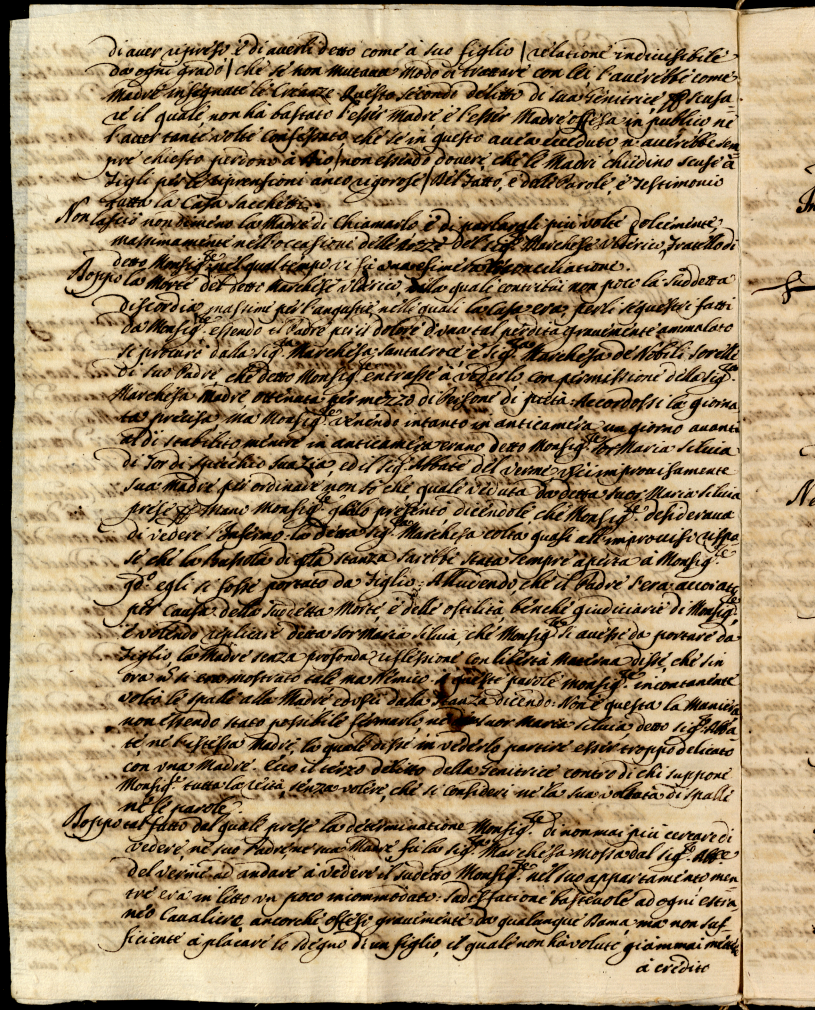 di aver ripreso è di averli detto come à suo figlio | relatione indiuisibile
da ogni grado | che se non mutaua modo di trattare con lei l'auerebbe come
Madre insegnate le Creanze. Questo secondo delitto di sua Genitrice
re il quale non hà bastato l'esser Madre è l'esser Madre offesa in publico nè
l'auer tante volte confessato che se in questo auea ecceduto n'auerebbe sem
pre chiesto perdono à Dio | non essendo douere che le Madri chiedino scuse à
Figli per le riprensioni anco rigorose | Del fatto, e delle Parole è Testimonio
tutta la Casa Sacchetti.
Non lasciò non dimeno la Madre di Chiamarlo è di parlargli più volte dolcemente
massimamente nell'occasione delle Nozze del Sig.r Marchese Vrbrico, fratello di
detto Monsig.re nel qual tempo vi fù vna reconciliatione.
Doppo la Morte del detto Marchese alla quale contribuì non poco la suddetta
discordia, massime per l'angustie, nelle quali la Casa era, per li sequestri fatti
da Monsig.re essendo il Padre per il dolore d'vna tal perdita grauemente ammalato
si procurò dalla Sig.ra Marchesa Santacroce è Sig.ra Marchesa de Nobili Sorelle
di suo Padre, che detto Monsig.re entrasse à vederlo con permissione della Sig.ra
Marchesa Madre ottenuta per mezzo di Persone di pietà. Accordossi la giorna
ta precisa ma Monsig.re venendo intanto in anticamera vn giorno auanti
al dì stabilito mentre in anticamera erano detto Monsig.re Sor Maria Siluia
di Tor di Specchio sua Zia, ed il Sig.r Abbate del Verme vscì improuisamente
sua Madre per ordinare non sò che quale veduta da detta Suor Maria Siluia
prese p mano Monsig.re glielo presentò dicendole che Monsig.re desideraua
di vedere l'Infermo: la detta Sig.ra Marchesa colta quasi all'improuiso rispo
se che la Bussola di q.lla stanza sarebbe stata sempre aperta à Monsig.re
q.do egli si fosse portato da Figlio. Alludendo, che il Padre s'era accorato
per causa della suddetta Morte è delle ostilità benche giudiciarie di Monsig.re
è volendo replicare detta Sor Maria Siluia, che Monsig.re si auesse da portare da
Figlio la Madre senza profonda riflessione con libertà Materna disse, che sin
ora ñ si era mostrato tale ma Nemico. A queste parole Monsig.re incontanente
voltò le spalle alla Madre ed vscì dalla stanza dicendo: Non è questa la Maniera
non essendo stato possibile fermarlo nè Suor Maria Siluia detto Sig.r Abba
te nè l'istessa Madre, la quale disse in vederlo partire esser troppo delicato
con vna Madre. Ecco il terzo delitto della Genitrice contro di chi suppone
Monsig.re tutta la reità, senza volere, che si consideri nè la sua voltata di spalle
nè le parole.
Doppo tal fatto del quale prese la determinatione Monsig.re di non mai più cercare di
vedere, nè suo Padre, nè sua Madre fù la Sig.ra Marchesa mossa dal Sig.r Abb.e
del Verme ad andare à vedere il sudetto Monsig.re nel suo appartamento men
tre era in letto vn poco incommodato. Sodisfatione basteuole ad ogni estra
neo Caualiere ancorche offeso grauemente da qualunque Dama ma non suf
ficiente à placare lo sdegno di vn figlio, il quale non hà voluto giammai
à credito